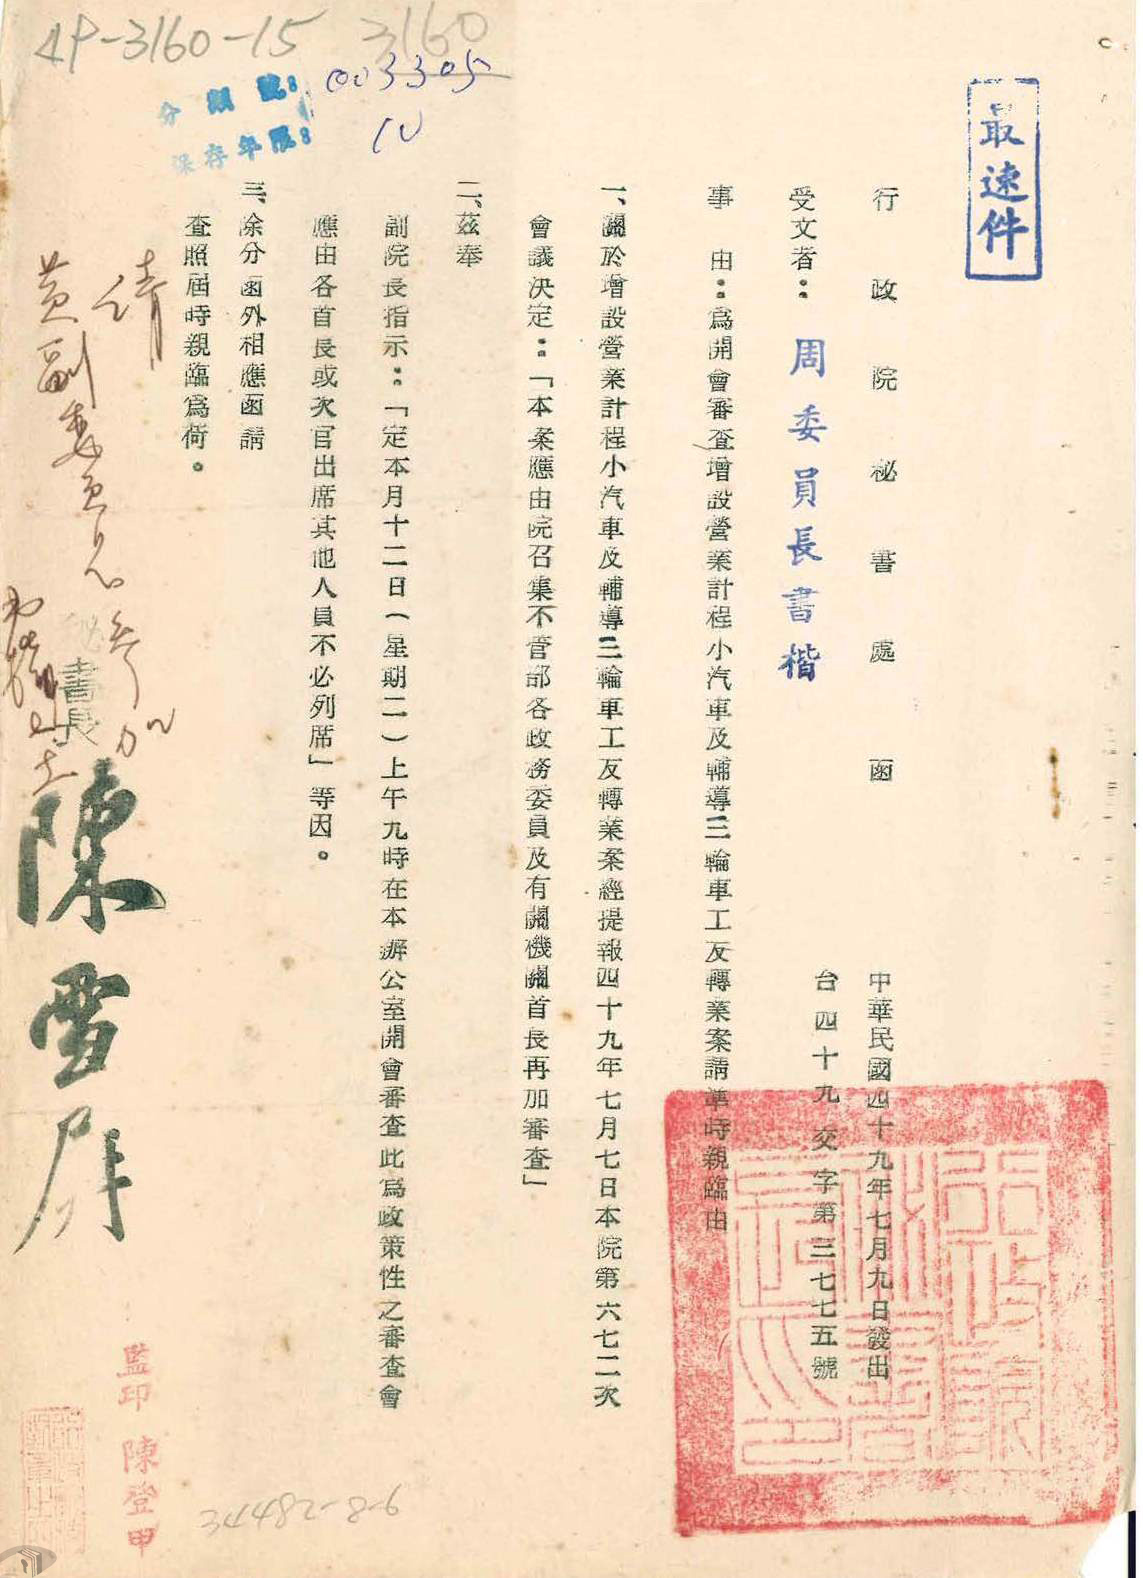 最速件
行政院秘書處函
中華民國四十九年七月九日發出
台四十九交字第三七七五號
受文者：周委員長書楷
事由：為開會審查增設營業計程小汽車及輔導三輪車工友轉業案請準時親臨由
一、關於增設營業計程小汽車及輔導三輪車工友轉業案經提報四十九年七月七日本院第六七二次
會議決定：「本案應由院召集不管部各政務委員及有關機關首長再加審查」
二、茲奉
副院長指示：「定本月十二日（星期二）上午九時在本辦公室開會審查此為政策性之審查會
應由各首長或次官出席其他人員不必列席」等因。
三、除分函外相應函請
查照屆時親臨為荷。
秘書長 陳雪屏
請
黃副委員長參加
監印 陳登甲
4P-3160-15
3160
分類號：003305
保存年限：10
34482-8-6
行政院秘書處印